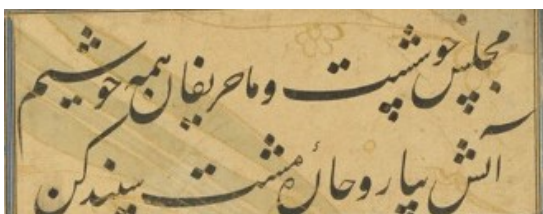 مجلس خوشست و ما حریفان همه خوشیم
آتش بیار و چارهٔ مشت سپند کن